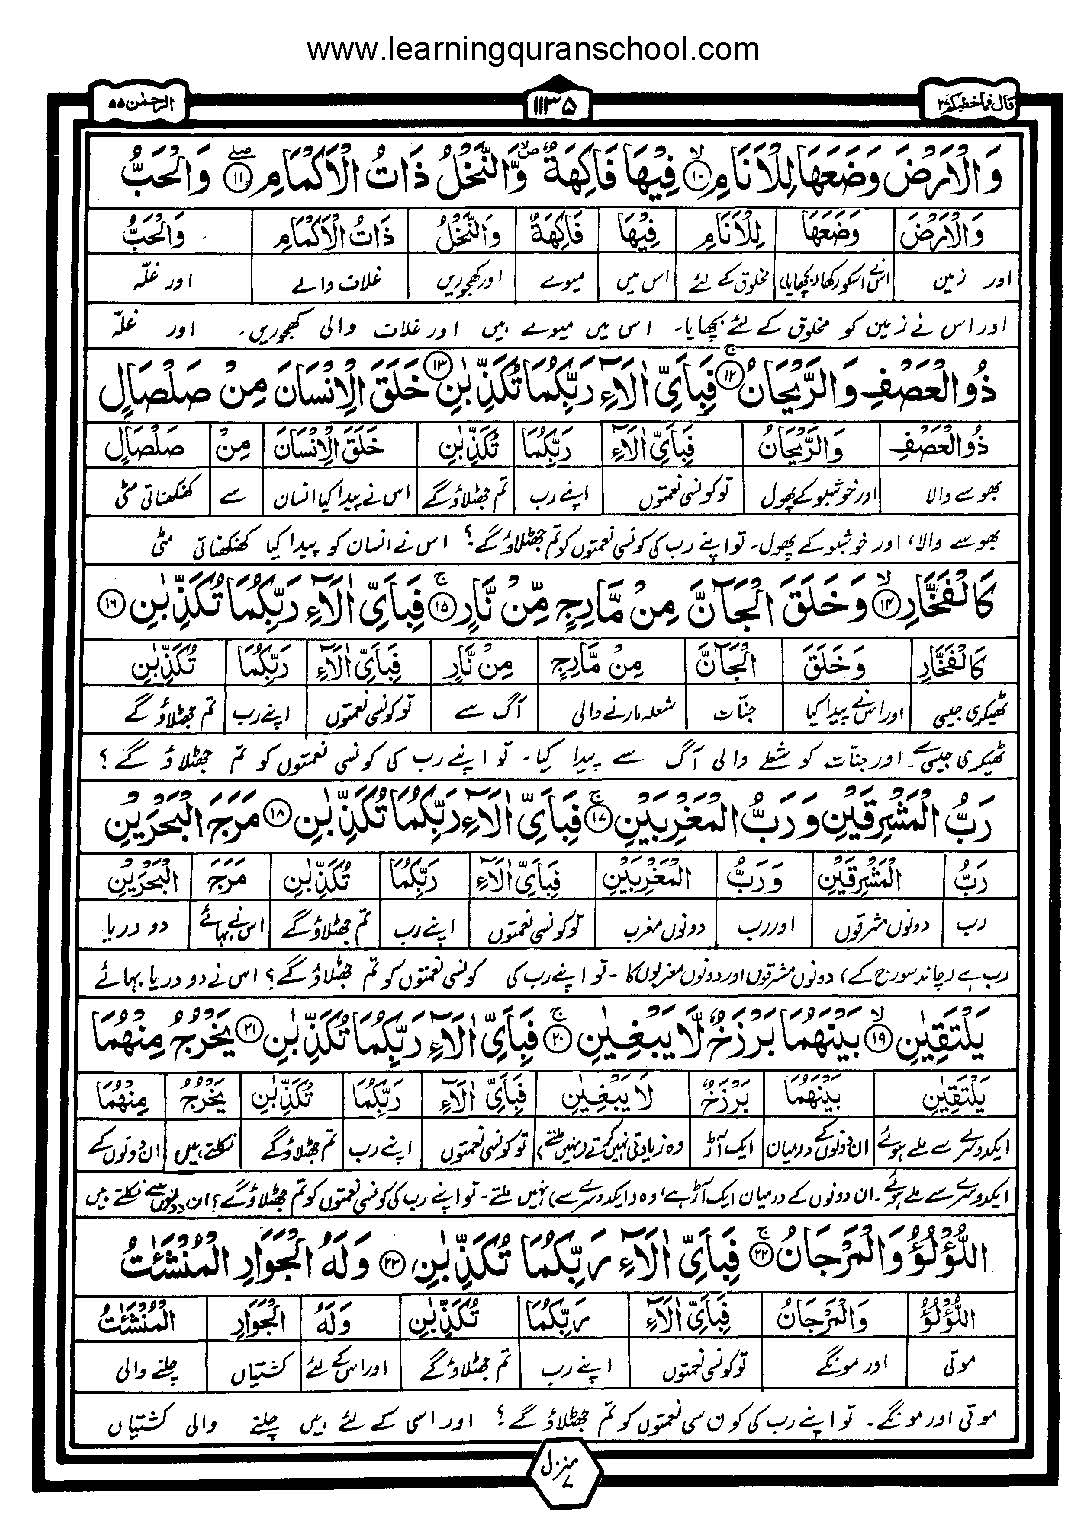 www.learningquranschool.com
قال فما خطبکم ۲۷ ۱۱۳۵ الرحمٰن ۵۵
وَالْاَرْضَ وَضَعَهَا لِلْاَنَامِ ۙ۝۱۰ فِيْهَا فَاكِهَةٌ ۪ۙ وَّالنَّخْلُ ذَاتُ الْاَكْمَامِ ۖ۝۱۱ وَالْحَبُّ
وَالْاَرْضَ وَضَعَهَا لِلْاَنَامِ فِيْهَا فَاكِهَةٌ وَّالنَّخْلُ ذَاتُ الْاَكْمَامِ وَالْحَبُّ
اور زمین اس نے اسکو رکھا (بچھایا) مخلوق کے لئے اس میں میوے اور کھجوریں غلاف والے اور غلّہ
اور اس نے زمین کو مخلوق کے لئے بچھایا۔ اس میں میوے ہیں اور غلاف والی کھجوریں۔ اور غلّہ
ذُو الْعَصْفِ وَالرَّيْحَانُ ۚ۝۱۲ فَبِاَيِّ اٰلَآءِ رَبِّكُمَا تُكَذِّبٰنِ ۝۱۳ خَلَقَ الْاِنْسَانَ مِنْ صَلْصَالٍ
ذُو الْعَصْفِ وَالرَّيْحَانُ فَبِاَيِّ اٰلَآءِ رَبِّكُمَا تُكَذِّبٰنِ خَلَقَ الْاِنْسَانَ مِنْ صَلْصَالٍ
بھوسے والا اور خوشبو کے پھول تو کونسی نعمتوں اپنے رب تم جھٹلاؤ گے اس نے پیدا کیا انسان سے کھنکھناتی مٹی
بھوسے والا، اور خوشبو کے پھول۔ تو اپنے رب کی کونسی نعمتوں کو تم جھٹلاؤ گے؟ اس نے انسان کو پیدا کیا کھنکھناتی مٹی
كَالْفَخَّارِ ۙ۝۱۴ وَخَلَقَ الْجَآنَّ مِنْ مَّارِجٍ مِّنْ نَّارٍ ۚ۝۱۵ فَبِاَيِّ اٰلَآءِ رَبِّكُمَا تُكَذِّبٰنِ ۝۱۶
كَالْفَخَّارِ وَخَلَقَ الْجَآنَّ مِنْ مَّارِجٍ مِنْ نَّارٍ فَبِاَيِّ اٰلَآءِ رَبِّكُمَا تُكَذِّبٰنِ
ٹھیکری جیسی اور اس نے پیدا کیا جنّات شعلہ مارنے والی آگ سے تو کونسی نعمتوں اپنے رب تم جھٹلاؤ گے
ٹھیکری جیسی سے۔ اور جنّات کو شعلے والی آگ سے پیدا کیا۔ تو اپنے رب کی کونسی نعمتوں کو تم جھٹلاؤ گے؟
رَبُّ الْمَشْرِقَيْنِ وَرَبُّ الْمَغْرِبَيْنِ ۚ۝۱۷ فَبِاَيِّ اٰلَآءِ رَبِّكُمَا تُكَذِّبٰنِ ۝۱۸ مَرَجَ الْبَحْرَيْنِ
رَبُّ الْمَشْرِقَيْنِ وَرَبُّ الْمَغْرِبَيْنِ فَبِاَيِّ اٰلَآءِ رَبِّكُمَا تُكَذِّبٰنِ مَرَجَ الْبَحْرَيْنِ
رب دونوں مشرقوں اور رب دونوں مغرب تو کونسی نعمتوں اپنے رب تم جھٹلاؤ گے اس نے بہائے دو دریا
رب ہے (چاند سورج کے) دونوں مشرقوں اور دونوں مغربوں کا۔ تو اپنے رب کی کونسی نعمتوں کو تم جھٹلاؤ گے؟ اس نے دو دریا بہائے
يَلْتَقِيٰنِ ۙ۝۱۹ بَيْنَهُمَا بَرْزَخٌ لَّا يَبْغِيٰنِ ۚ۝۲۰ فَبِاَيِّ اٰلَآءِ رَبِّكُمَا تُكَذِّبٰنِ ۝۲۱ يَخْرُجُ مِنْهُمَا
يَلْتَقِيٰنِ بَيْنَهُمَا بَرْزَخٌ لَا يَبْغِيٰنِ فَبِاَيِّ اٰلَآءِ رَبِّكُمَا تُكَذِّبٰنِ يَخْرُجُ مِنْهُمَا
ایکدوسرے سے ملے ہوئے ان دونوں کے درمیان ایک آڑ وہ زیادتی نہیں کرتے (نہیں ملتے) تو کونسی نعمتوں اپنے رب تم جھٹلاؤ گے نکلتے ہیں ان دونوں کے
ایکدوسرے سے ملے ہوئے۔ ان دونوں کے درمیان ایک آڑ ہے، وہ (ایکدوسرے سے) نہیں ملتے۔ تو اپنے رب کی کونسی نعمتوں کو تم جھٹلاؤ گے؟ ان دونوں سے نکلتے ہیں
اللُّؤْلُؤُ وَالْمَرْجَانُ ۚ۝۲۲ فَبِاَيِّ اٰلَآءِ رَبِّكُمَا تُكَذِّبٰنِ ۝۲۳ وَلَهُ الْجَوَارِ الْمُنْشَئٰتُ
اللُّؤْلُؤُ وَالْمَرْجَانُ فَبِاَيِّ اٰلَآءِ رَبِّكُمَا تُكَذِّبٰنِ وَلَهُ الْجَوَارِ الْمُنْشَئٰتُ
موتی اور مونگے تو کونسی نعمتوں اپنے رب تم جھٹلاؤ گے اور اس کے لئے کشتیاں چلنے والی
موتی اور مونگے۔ تو اپنے رب کی کون سی نعمتوں کو تم جھٹلاؤ گے؟ اور اسی کے لئے ہیں چلنے والی کشتیاں
منزل ۷